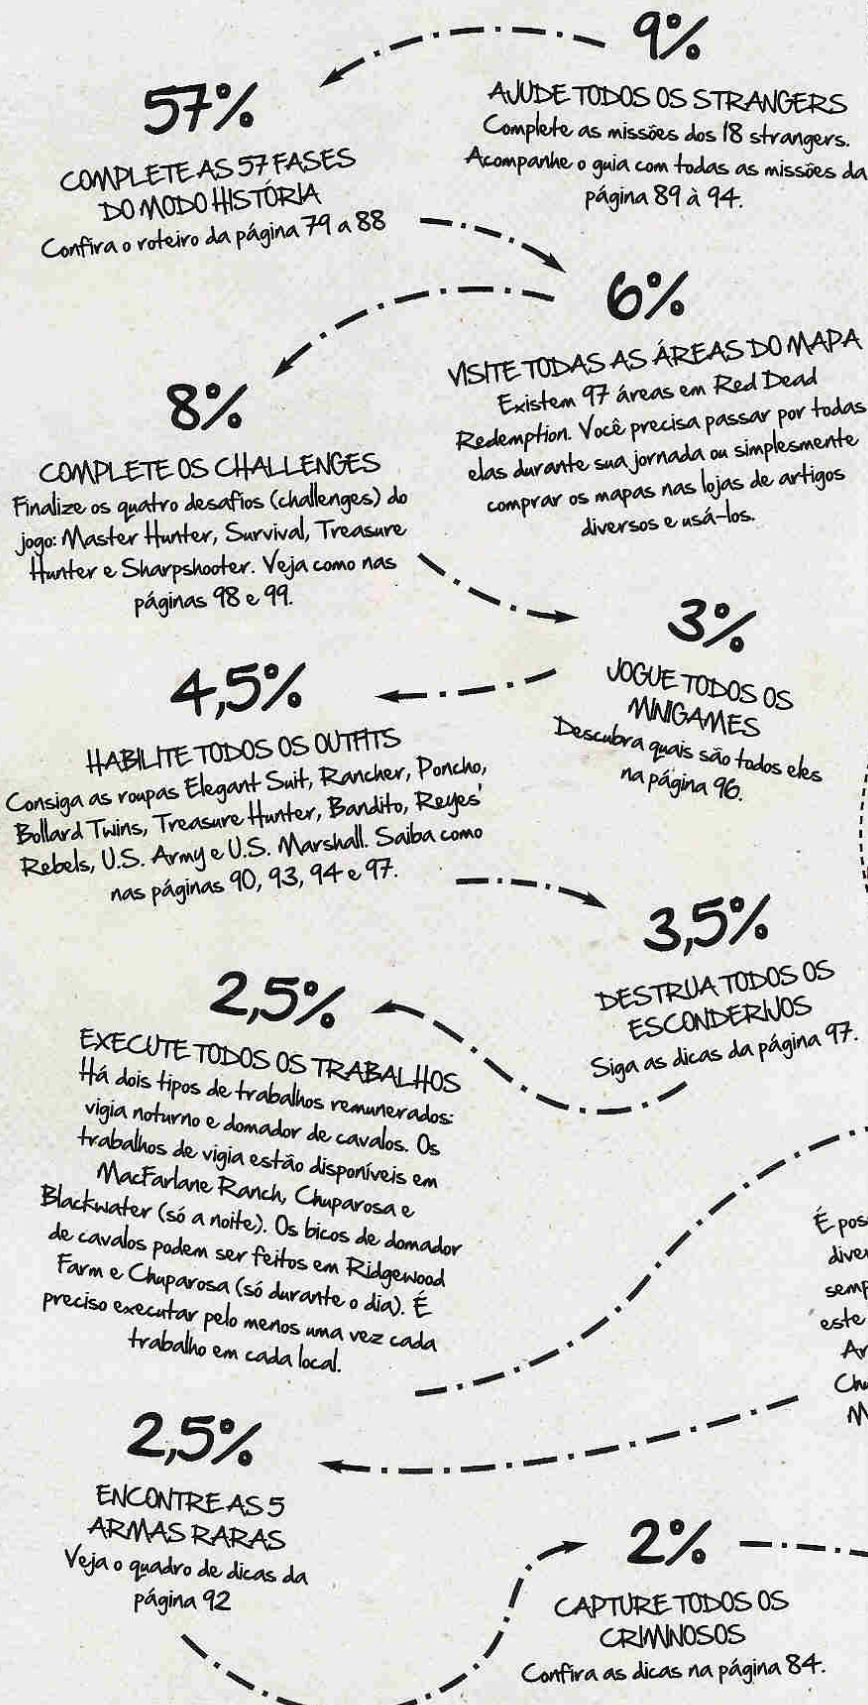 9%
AJUDE TODOS OS STRANGERS
Complete as missões dos 18 strangers.
Acompanhe o guia com todas as missões da
página 89 à 94.
57%
COMPLETE AS 57 FASES
DO MODO HISTÓRIA
Confira o roteiro da página 79 a 88
6%
VISITE TODAS AS ÁREAS DO MAPA
Existem 97 áreas em Red Dead
Redemption. Você precisa passar por todas
elas durante sua jornada ou simplesmente
comprar os mapas nas lojas de artigos
diversos e usá-los.
8%
COMPLETE OS CHALLENGES
Finalize os quatro desafios (challenges) do
jogo: Master Hunter, Survival, Treasure
Hunter e Sharpshooter. Veja como nas
páginas 98 e 99.
3%
JOGUE TODOS OS
MINIGAMES
Descubra quais são todos eles
na página 96.
4,5%
HABILITE TODOS OS OUTFITS
Consiga as roupas Elegant Suit, Rancher, Poncho,
Bollard Twins, Treasure Hunter, Bandito, Reyes'
Rebels, U.S. Army e U.S. Marshall. Saiba como
nas páginas 90, 93, 94 e 97.
3,5%
DESTRUA TODOS OS
ESCONDERIJOS
Siga as dicas da página 97.
2,5%
EXECUTE TODOS OS TRABALHOS
Há dois tipos de trabalhos remunerados:
vigia noturno e domador de cavalos. Os
trabalhos de vigia estão disponíveis em
MacFarlane Ranch, Chuparosa e
Blackwater (só a noite). Os bicos de domador
de cavalos podem ser feitos em Ridgewood
Farm e Chuparosa (só durante o dia). É
preciso executar pelo menos uma vez cada
trabalho em cada local.
É pos
diver
semp
este
Ar
Chu
M
2,5%
ENCONTRE AS 5
ARMAS RARAS
Veja o quadro de dicas da
página 92
2%
CAPTURE TODOS OS
CRIMINOSOS
Confira as dicas na página 84.